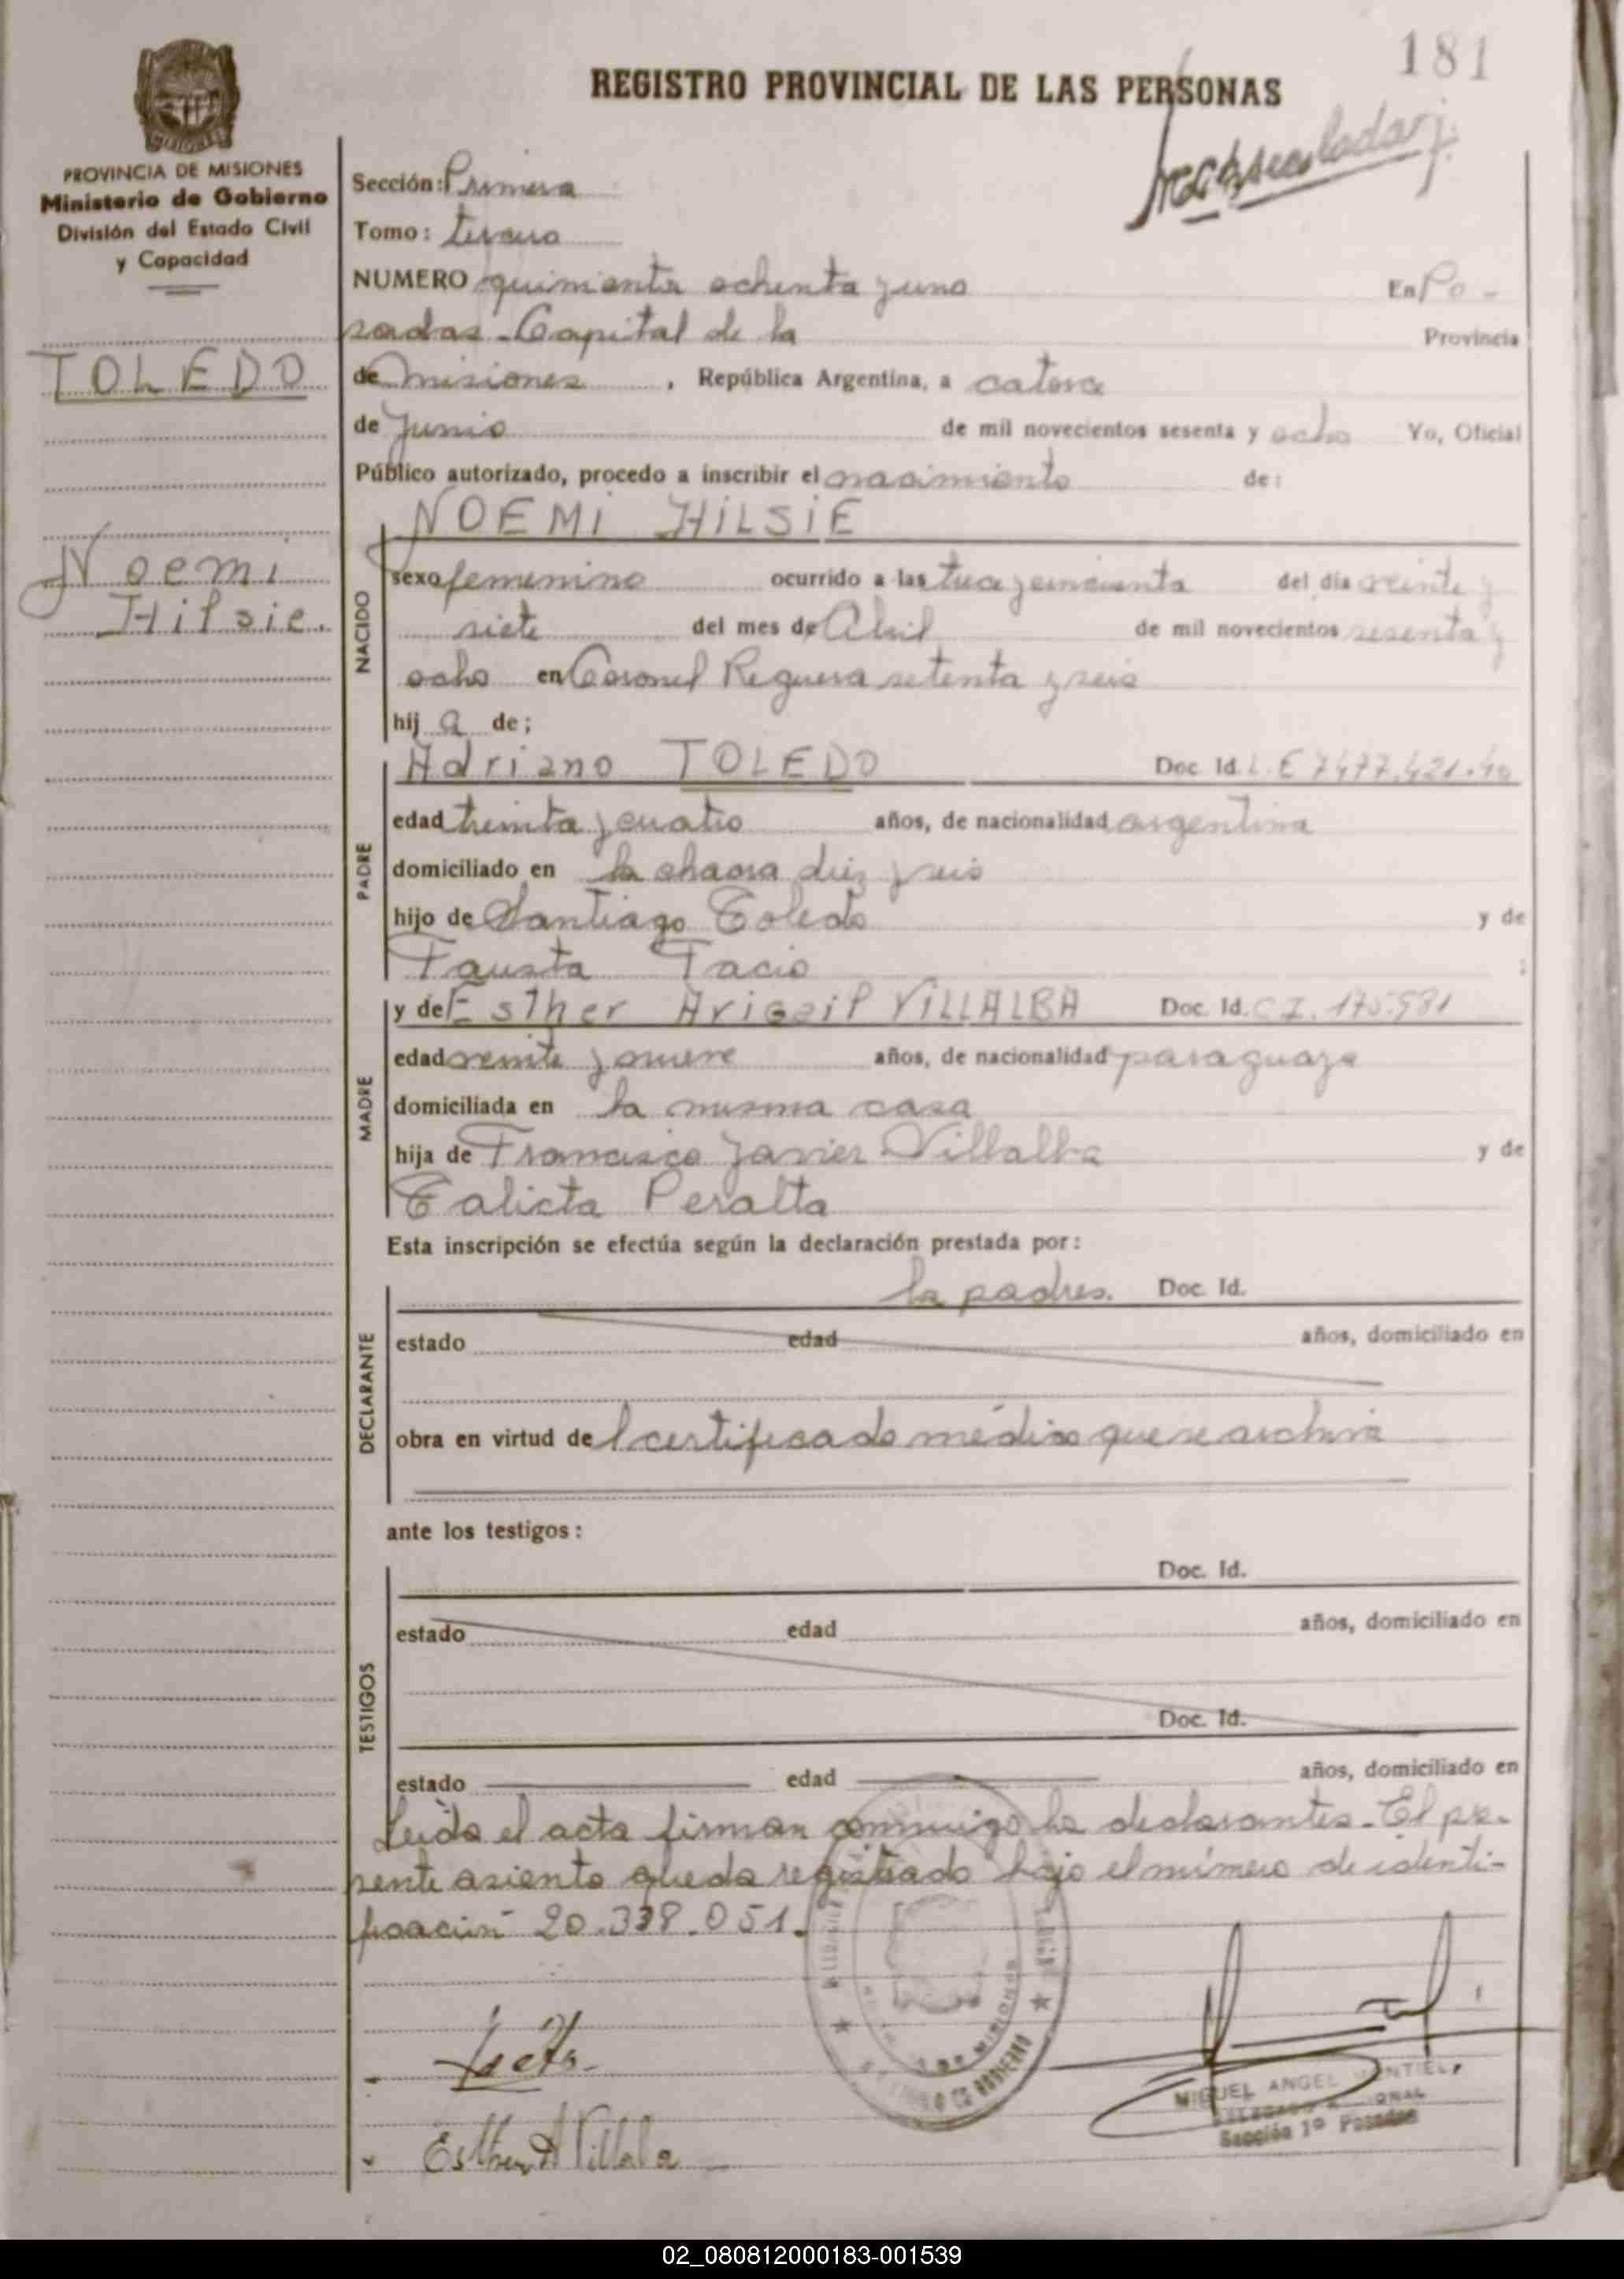 181
REGISTRO PROVINCIAL DE LAS PERSONAS
MISIONES
PROVINCIA DE MISIONES
Ministerio de Gobierno
División del Estado Civil
y Capacidad
TOLEDO
Noemi
Hilsie.
Sección: Primera
Tomo: tercero
NUMERO quinientos ochenta y uno En Po-
sadas - Capital de la Provincia
de misiones, República Argentina, a catorce
de Junio de mil novecientos sesenta y ocho Yo, Oficial
Público autorizado, procedo a inscribir el nacimiento de:
NOEMI HILSIE
NACIDO
sexo femenino ocurrido a las trece y cincuenta del día veinte y
siete del mes de Abril de mil novecientos sesenta y
ocho en Coronel Reguera setenta y seis
hij a de;
PADRE
Adriano TOLEDO Doc. Id. L.E 7477.421.
edad treinta y cuatro años, de nacionalidad argentina
domiciliado en la chacra diez y seis
hijo de Santiago Toledo y de
Fausta Tacio :
MADRE
y de Esther Avigail VILLALBA Doc. Id. C I. 175.981
edad veinte y nueve años, de nacionalidad paraguaya
domiciliada en la misma casa
hija de Francisco Javier Villalba y de
Calicta Peralta
Esta inscripción se efectúa según la declaración prestada por:
DECLARANTE
los padres. Doc. Id.
estado edad años, domiciliado en
obra en virtud del certificado médico que se archiva
ante los testigos:
TESTIGOS
Doc. Id.
estado edad años, domiciliado en
Doc. Id.
estado edad años, domiciliado en
Leida el acta firman conmigo los declarantes. El pre-
sente asiento queda registrado bajo el número de identi-
ficación 20.338.051.
MIGUEL ANGEL MONTIEL
Sección 1º Posadas
Esther A Villalba
02_080812000183-001539